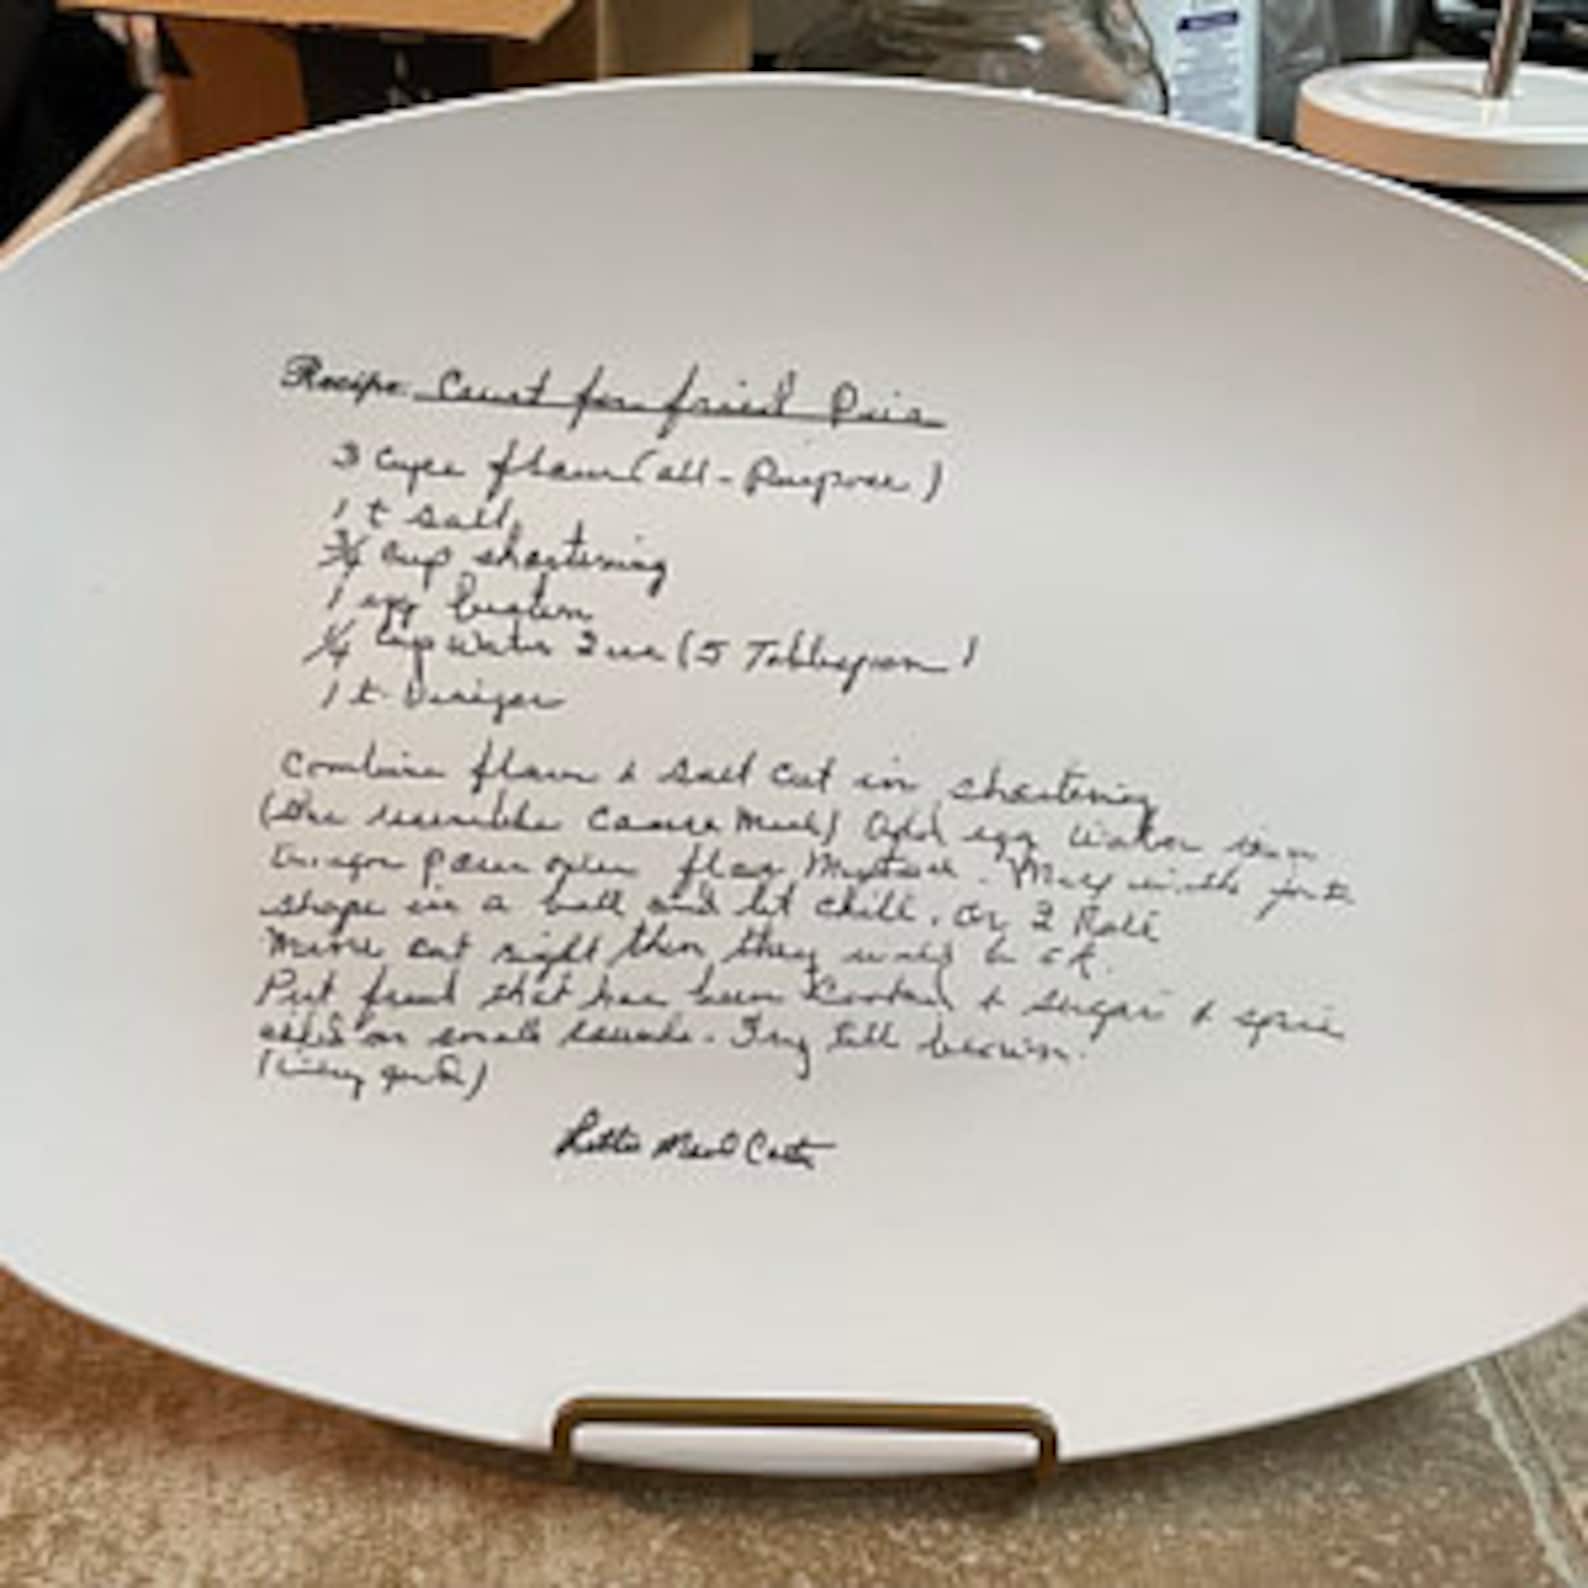 Recipe: Crust for fried Pies
3 cups flour (all-Purpose)
1 t salt
3/4 cup shortening
1 egg beaten
1/4 cup water (5 Tablespoon)
1 t. Vinegar
Combine flour & salt cut in shortening
resembles course Meal) Add egg water
pour over flour Mixture. Mix with fork
shape in a ball and let chill. or I Roll
mine out right then they will be ok.
Put fruit that has been Cooked & sugar & spice
on small rounds. Fry till brown.
(very good)
Lettie Carter